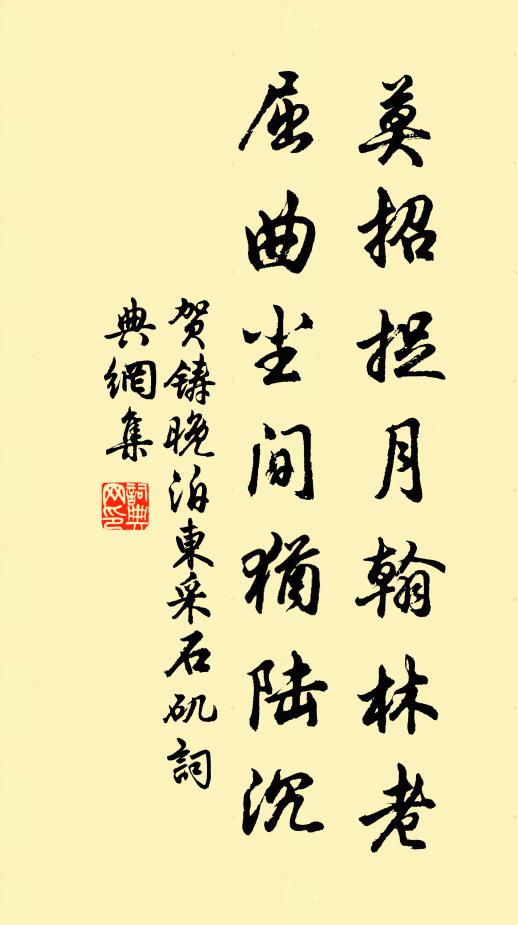 莫招捉月翰林老
屈曲尘间犹陆沉
贺铸晚泊東采石矶詞
典網集
詞典
网印